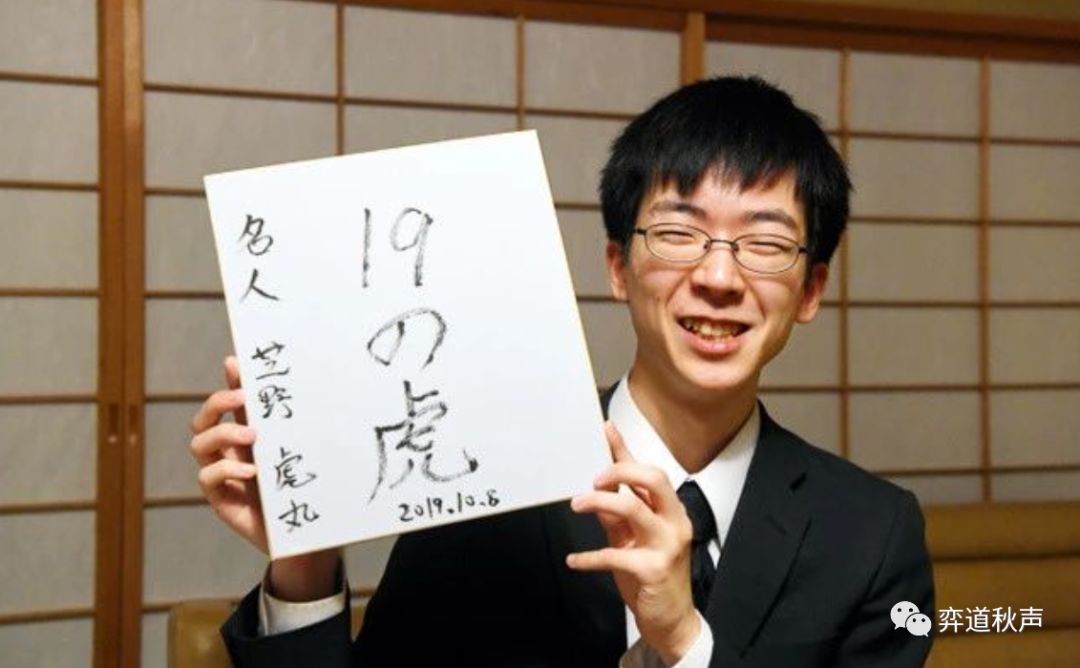 19の虎
2019.10.8
名人 芝野 虎丸
弈道秋声